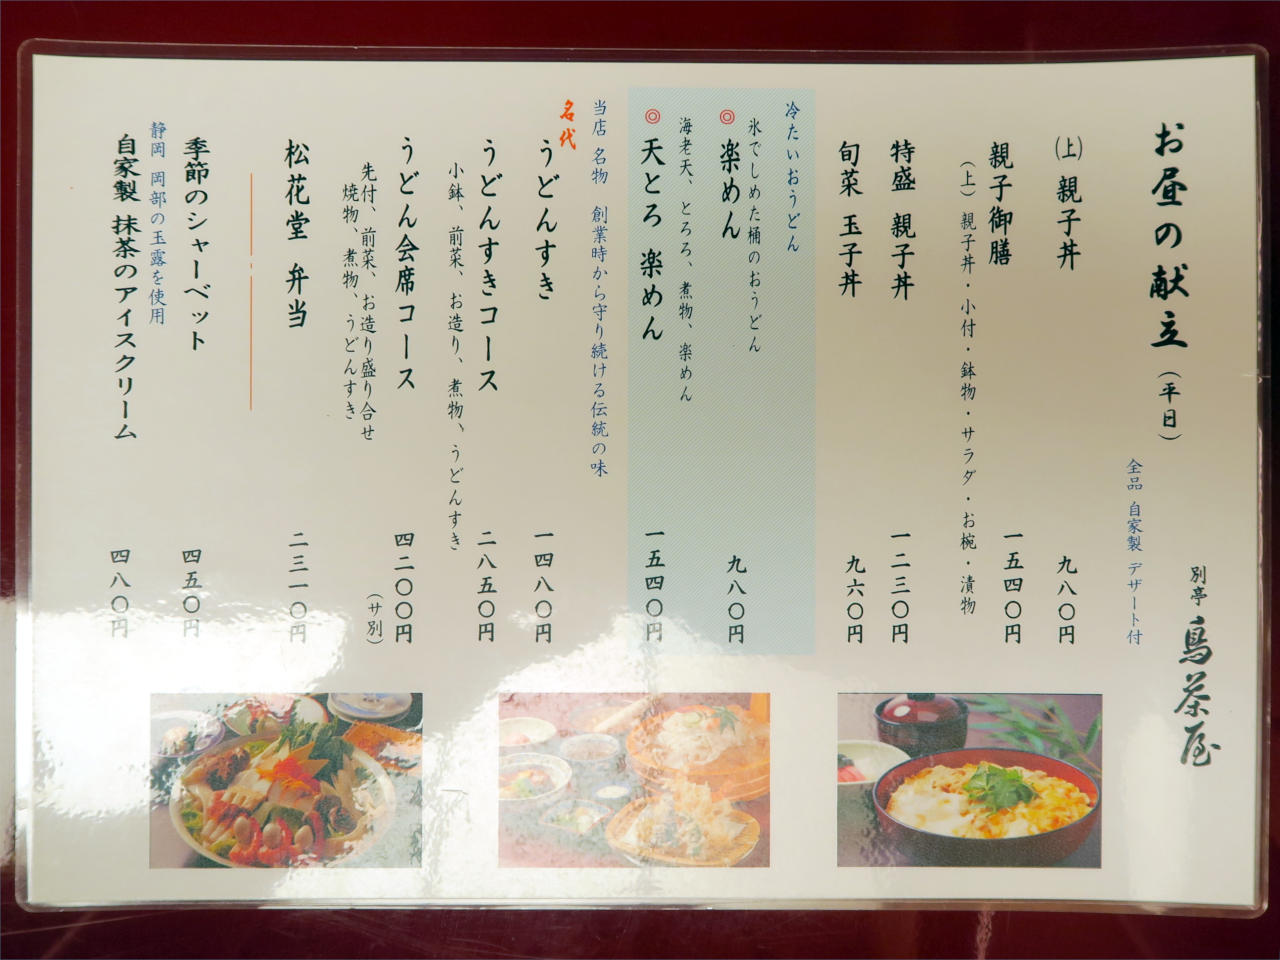 お昼の献立（平日）
別亭 鳥茶屋
全品 自家製 デザート付
(上) 親子丼 九八〇円
親子御膳 一五四〇円
（上）親子丼・小付・鉢物・サラダ・お椀・漬物
特盛 親子丼 一二三〇円
旬菜 玉子丼 九六〇円
冷たいおうどん
氷でしめた桶のおうどん
◎ 楽めん 九八〇円
海老天、とろろ、煮物、楽めん
◎ 天とろ 楽めん 一五四〇円
当店 名物 創業時から守り続ける伝統の味
名代
うどんすき 一四八〇円
うどんすきコース 二八五〇円
小鉢、前菜、お造り、煮物、うどんすき
うどん会席コース 四二〇〇円
（サ別）
先付、前菜、お造り盛り合せ
焼物、煮物、うどんすき
松花堂 弁当 二三一〇円
季節のシャーベット 四五〇円
静岡 岡部の玉露を使用
自家製 抹茶のアイスクリーム 四八〇円